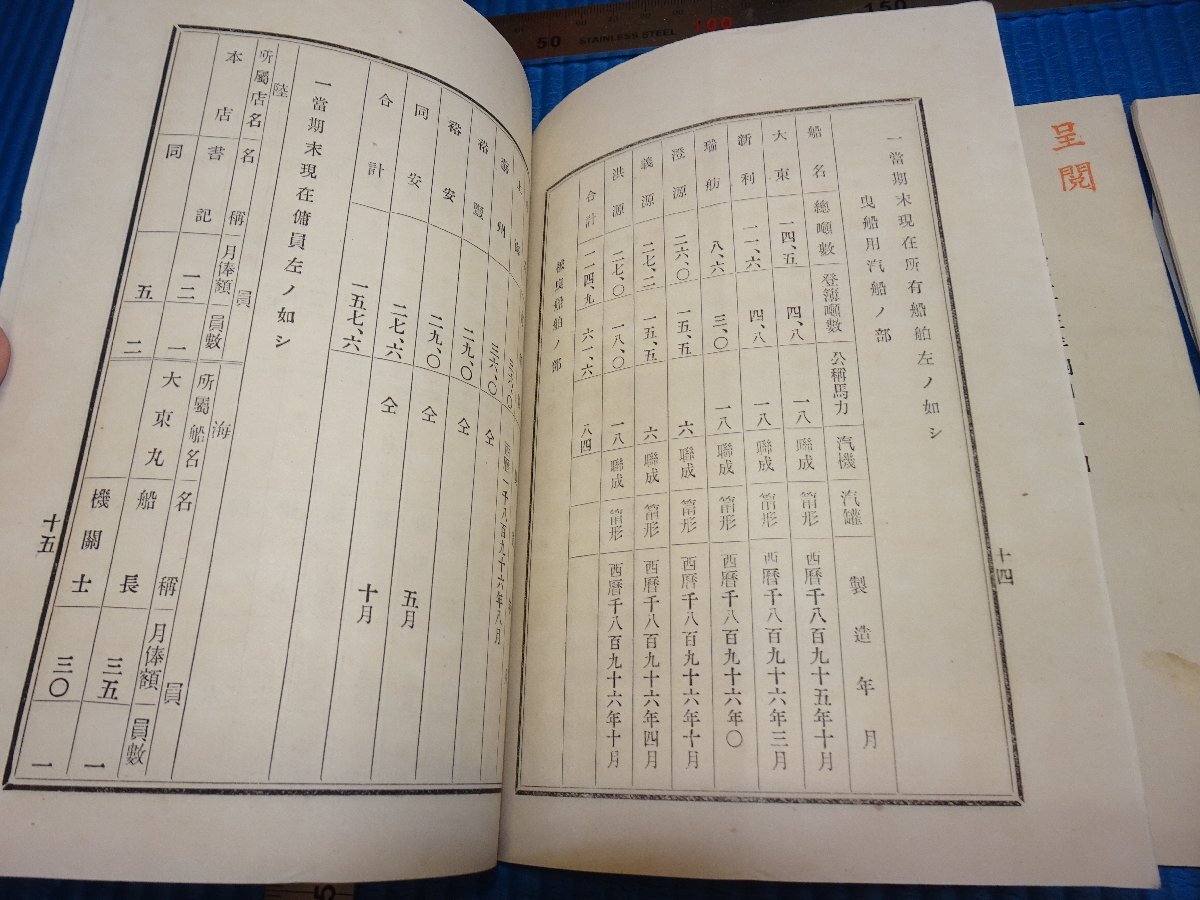 一當期末現在所有船舶左ノ如シ
曳船用汽船ノ部
船名 總噸數 登簿噸數 公稱馬力 汽機 汽罐 製造年月
大東 一四、五 四、八 一八 聯成 筩形 西曆千八百九十五年十月
新利 一一、六 四、八 一八 聯成 筩形 西曆千八百九十六年三月
瑞舫 八、六 三、〇 一八 聯成 筩形 西曆千八百九十六年〇
澄源 二六、〇 一五、五 六 聯成 筩形 西曆千八百九十六年十月
義源 二七、二 一五、五 六 聯成 筩形 西曆千八百九十六年四月
洪源 二七、〇 一八、〇 一八 聯成 筩形 西曆千八百九十六年十月
合計 一一四、九 六一、六 八四
被曳船舶ノ部
十四
三六、〇 仝 西曆一千八百九十六年八月
裕豐 二九、〇 仝
裕安 二九、〇 仝
同安 二七、六 仝 五月
合計 一五七、六 十月
一當期末現在傭員左ノ如シ
陸員 海員
所屬店名 名稱 月俸額 員數 所屬船名 名稱 月俸額 員數
本店 書記 一二 一 大東丸 船長 三五 一
同 五 二 機關士 三〇 一
十五
呈閱
50 STAINLESS STEEL 100 150